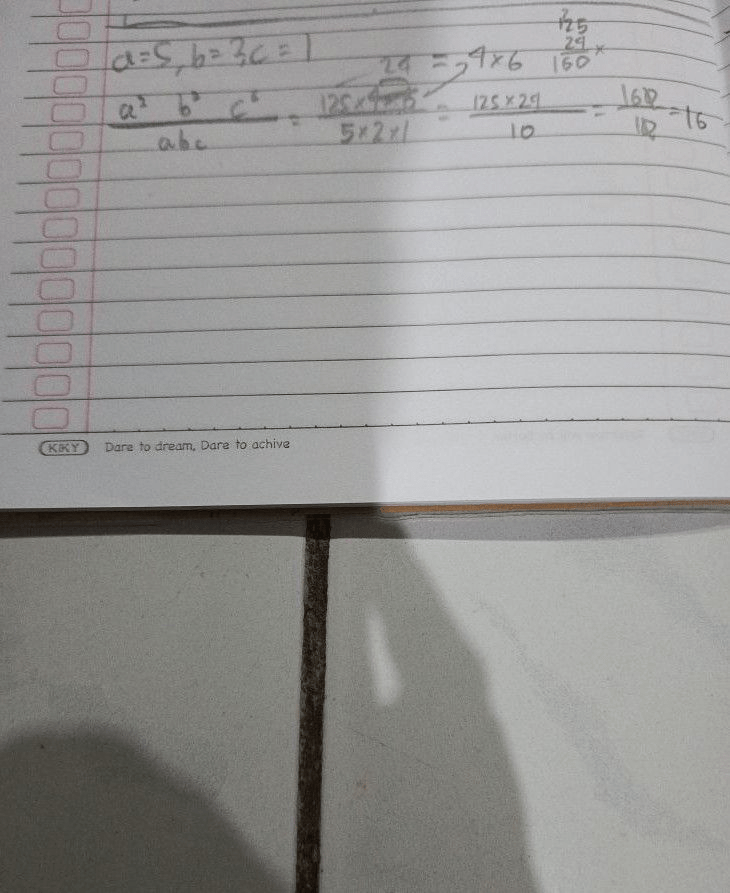 125
a=5, b=3, c=1
24 = 4×6
24 ×
160
a² b³ c⁶ / abc = 125×4×6 / 5×2×1 = 125×24 / 10 = 160 / 10 = 16
KIKY Dare to dream, Dare to achive